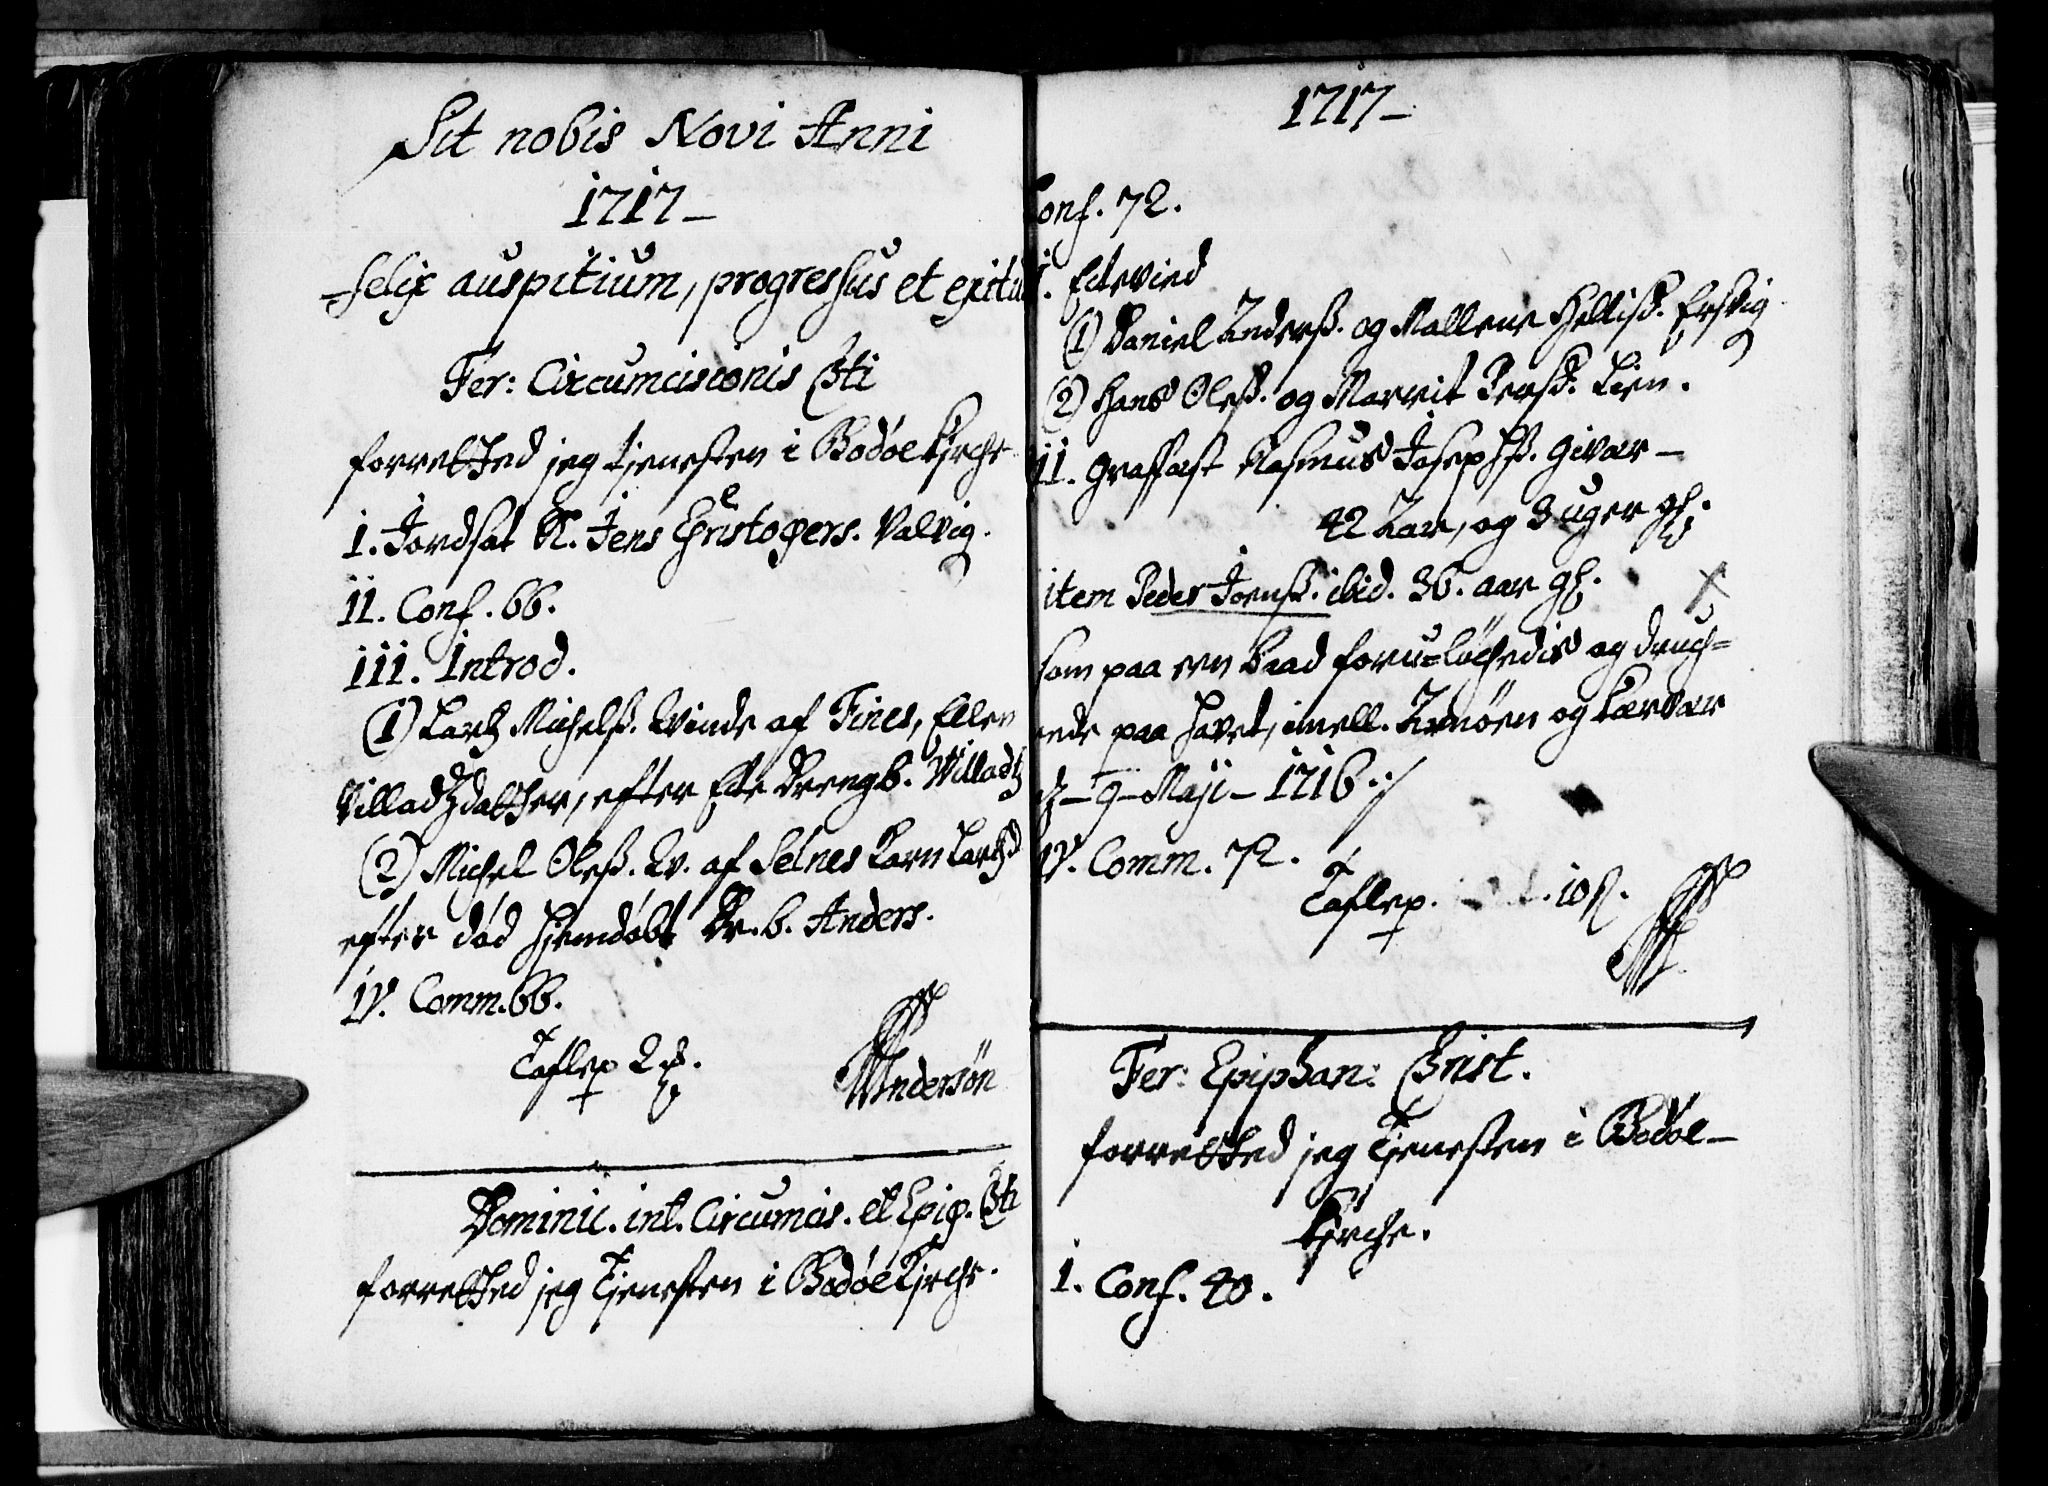 Sit nobis Novi Anni
1717 –
felix auspitium, progressus et exitus
Fer: Circumcisionis Xsti
forretted jeg tjenesten i Bodøe Kjrche
I. Jordsat K. Jens Christophers. Valvig.
II. Conf. 66.
III. Introd.
(1) Lartz Michelß. Qvinde af Fines, Ellen
Villadtzdatter, efter Ecte Drengb. Willadtz
(2) Michel Oleß. Qv. af Selnes Karn Lartzd
efter død Hjemdøbt Dr. b. Anders.
IV. Comm. 66.
Taflep 2
Andersøn
Dominic. int. Circumcis. et Epip. Xsti
forretted jeg Tjenesten i Bodøe Kjrche.
1717 –
Conf. 72.
I. Ectevied
(1) Daniel Anderß. og Mallene Hellisd. Erßvig
(2) Hans Oleß. og Marrit Persd. Lien.
II. Graffæst Rasmus Josephß. Givær –
42 Aar, og 3 uger gl.
item Peder Joenß. ibid. 36. aar gl.
som paa een baad foru=löchedis og druch=
nede paa havet, imell. Arnöen og
d – 9 – Maji – 1716 :/
IV. Comm. 72.
Taflep. 10 ß.
Fer: Epiphan: Christ.
forretted jeg Tjenesten i Bodøe –
Kjrche.
I. Conf. 40.